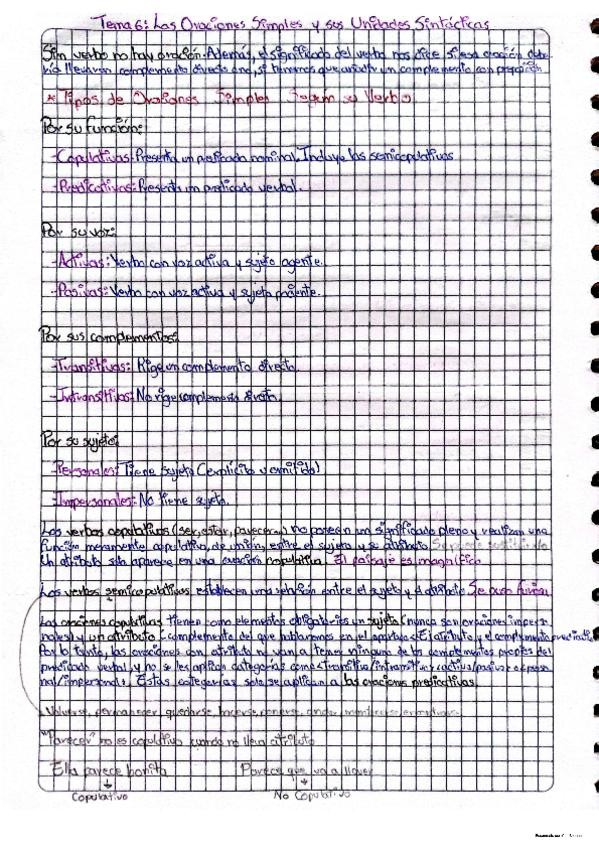 Tema 6: Las Oraciones Simples y sus Unidades Sintácticas
Sin verbo no hay oración. Además, el significado del verbo nos dice si esa oración
llevar un complemento directo o no, si tenemos que añadir un complemento con preposición
* Tipos de Oraciones Simples Según su Verbo
Por su función:
-Copulativas: Presenta un predicado nominal. Incluye las semicopulativas
-Predicativas: Presenta un predicado verbal.
Por su voz:
-Activas: Verbo con voz activa y sujeto agente.
-Pasivas: Verbo con voz activa y sujeto paciente.
Por sus complementos:
-Transitivas: Rige un complemento directo.
-Intransitivas: No rige complemento directo.
Por su sujeto:
-Personales: Tiene sujeto (explícito u omitido)
-Impersonales: No tiene sujeto.
Los verbos copulativos (ser, estar, parecer...) no poseen un significado pleno y realizan una
función meramente copulativa, de unión, entre el sujeto y su atributo.
Un atributo solo aparece en una oración copulativa. El paisaje es magnífico
Los verbos semicopulativos establecen una relación entre el sujeto y el atributo. Se puso furiosa
Las oraciones copulativas tienen como elementos obligatorios un sujeto (nunca son oraciones imperso-
nales) y un atributo (complemento del que hablaremos en el apartado «El atributo y el complemento predicativo
Por lo tanto, las oraciones con atributo no van a tener ninguno de los complementos propios del
predicado verbal, y no se les aplican categorías como transitiva/intransitiva, activa/pasiva o perso-
nal/impersonal. Estas categorías solo se aplican a las oraciones predicativas
Volverse, permanecer, quedarse, hacerse, ponerse, andar,
"Parecer" no es copulativo cuando no lleva atributo
Ella parece bonita Parece que va a llover
Copulativo No Copulativo